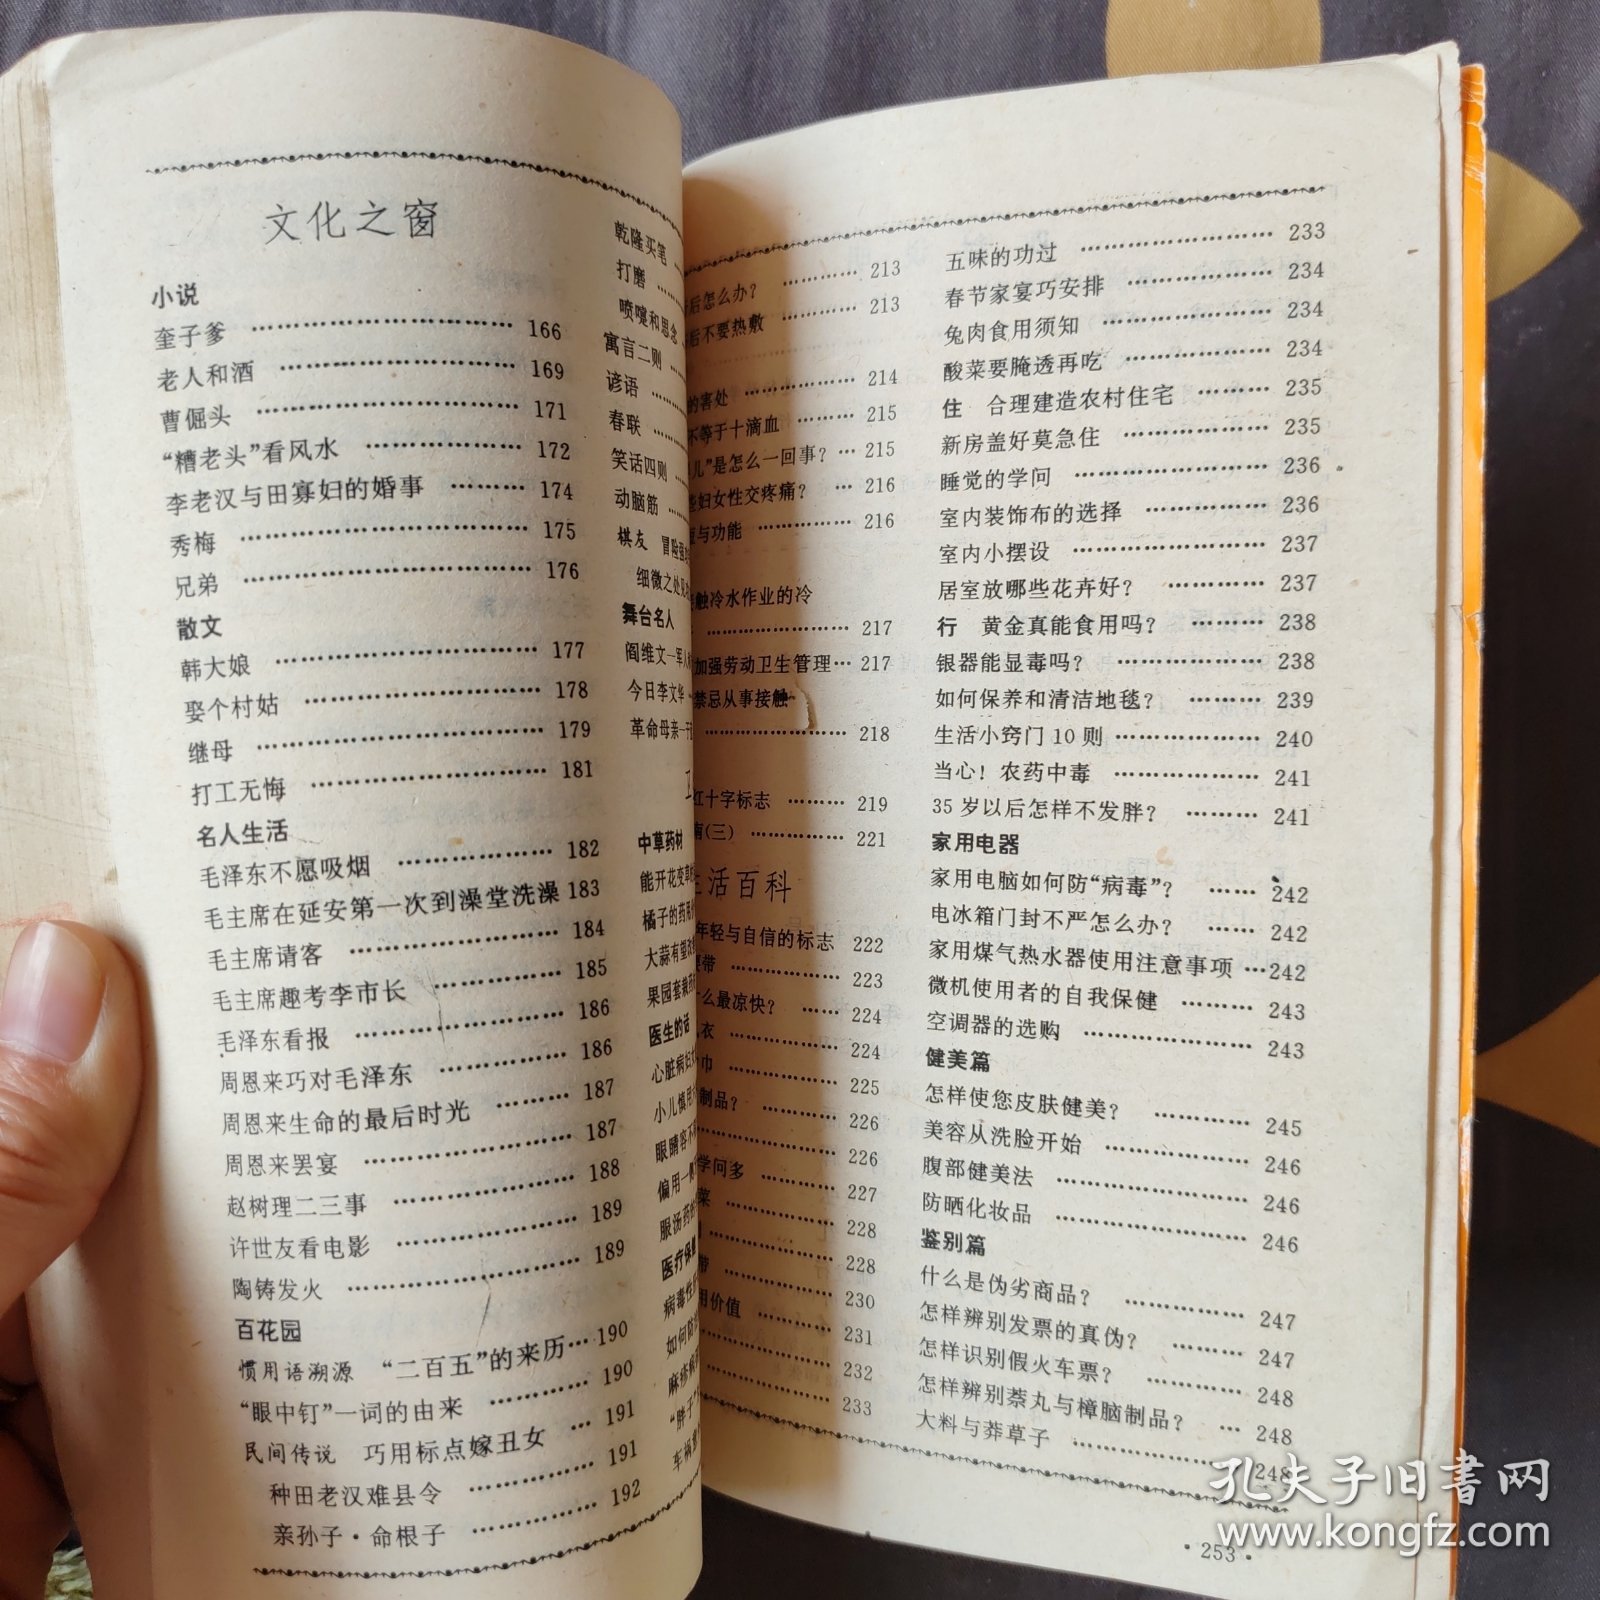 文化之窗
小说
奎子爹 …………………… 166
老人和酒 …………………… 169
曹倔头 …………………… 171
“糟老头”看风水 ……………… 172
李老汉与田寡妇的婚事 ……… 174
秀梅 …………………… 175
兄弟 …………………… 176
散文
韩大娘 …………………… 177
娶个村姑 …………………… 178
继母 …………………… 179
打工无悔 …………………… 181
名人生活
毛泽东不愿吸烟 …………… 182
毛主席在延安第一次到澡堂洗澡 183
毛主席请客 ………………… 184
毛主席趣考李市长 …………… 185
毛泽东看报 ………………… 186
周恩来巧对毛泽东 …………… 186
周恩来生命的最后时光 ……… 187
周恩来罢宴 ………………… 187
赵树理二三事 ……………… 188
许世友看电影 ……………… 189
陶铸发火 ………………… 189
百花园
惯用语溯源 “二百五”的来历… 190
“眼中钉”一词的由来 ……… 190
民间传说 巧用标点嫁丑女 … 191
种田老汉难县令 …………… 191
亲孙子·命根子 …………… 192
乾隆买笔
打磨
喷嚏和思念
寓言二则
谚语
春联
笑话四则
动脑筋
棋友 冒险
细微之处见
舞台名人
阎维文—军人
今日李文华
革命母亲—
中草药材
能开花变
橘子的药用
大蒜有望
果园套栽药
医生的话
心脏病妇
小儿慎用
眼睛容不
偏用一侧
服汤药
医疗保健
病毒性
如何防治
麻疹病
“胖子”
车祸
后怎么办？ ………… 213
后不要热敷 ………… 213
的害处 ………… 214
不等于十滴血 ………… 215
儿”是怎么一回事？ … 215
些妇女性交疼痛？ … 216
与功能 ………… 216
触冷水作业的冷
………… 217
加强劳动卫生管理… 217
禁忌从事接触
………… 218
红十字标志 ……… 219
南(三) ………… 221
生活百科
年轻与自信的标志 222
带 ………… 223
什么最凉快？ …… 224
衣 ………… 224
巾 ………… 225
制品？ ………… 226
………… 226
学问多 ………… 227
菜 ………… 228
………… 228
带 ………… 230
用价值 ………… 231
………… 232
………… 233
五味的功过 ………………… 233
春节家宴巧安排 …………… 234
兔肉食用须知 …………… 234
酸菜要腌透再吃 …………… 234
住 合理建造农村住宅 ……… 235
新房盖好莫急住 …………… 235
睡觉的学问 ……………… 236
室内装饰布的选择 ………… 236
室内小摆设 ……………… 237
居室放哪些花卉好？ ……… 237
行 黄金真能食用吗？ ……… 238
银器能显毒吗？ …………… 238
如何保养和清洁地毯？ …… 239
生活小窍门 10 则 …………… 240
当心！农药中毒 …………… 241
35 岁以后怎样不发胖？ ……… 241
家用电器
家用电脑如何防“病毒”？ …… 242
电冰箱门封不严怎么办？ …… 242
家用煤气热水器使用注意事项 …242
微机使用者的自我保健 ……… 243
空调器的选购 …………… 243
健美篇
怎样使您皮肤健美？ ……… 245
美容从洗脸开始 …………… 246
腹部健美法 ……………… 246
防晒化妆品 ……………… 246
鉴别篇
什么是伪劣商品？ ………… 247
怎样辨别发票的真伪？ …… 247
怎样识别假火车票？ ……… 248
怎样辨别萘丸与樟脑制品？ … 248
大料与莽草子 …………… 248
·253·
孔夫子旧書网
www.kongfz.com